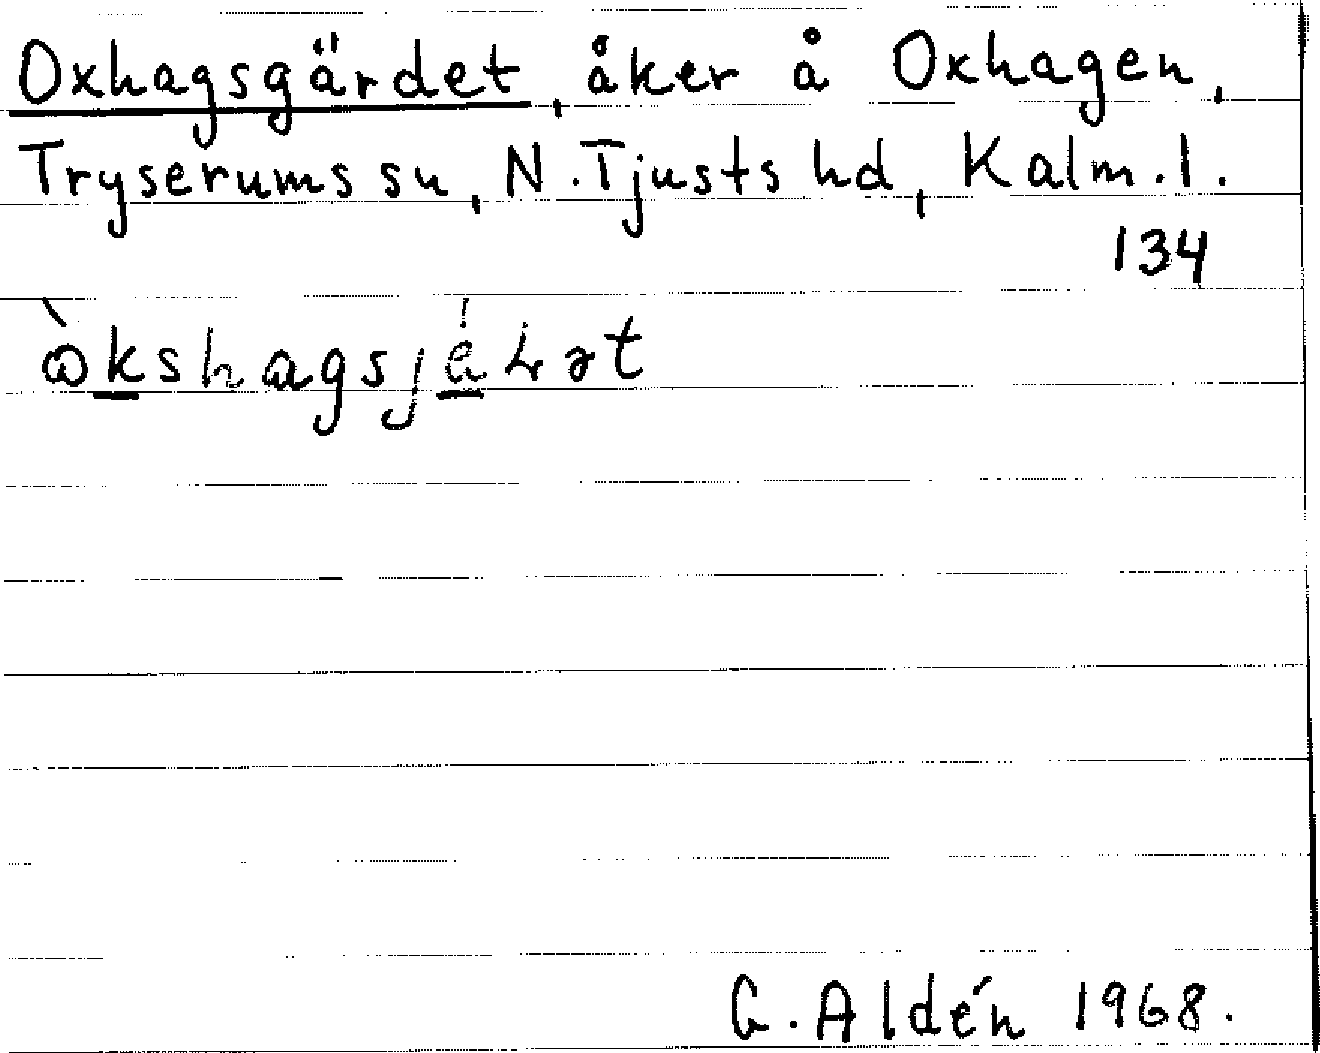 Oxhagsgärdet, åker å Oxhagen,
Tryserums sn, N. Tjusts hd, Kalm. l.
134
G. Aldén 1968.